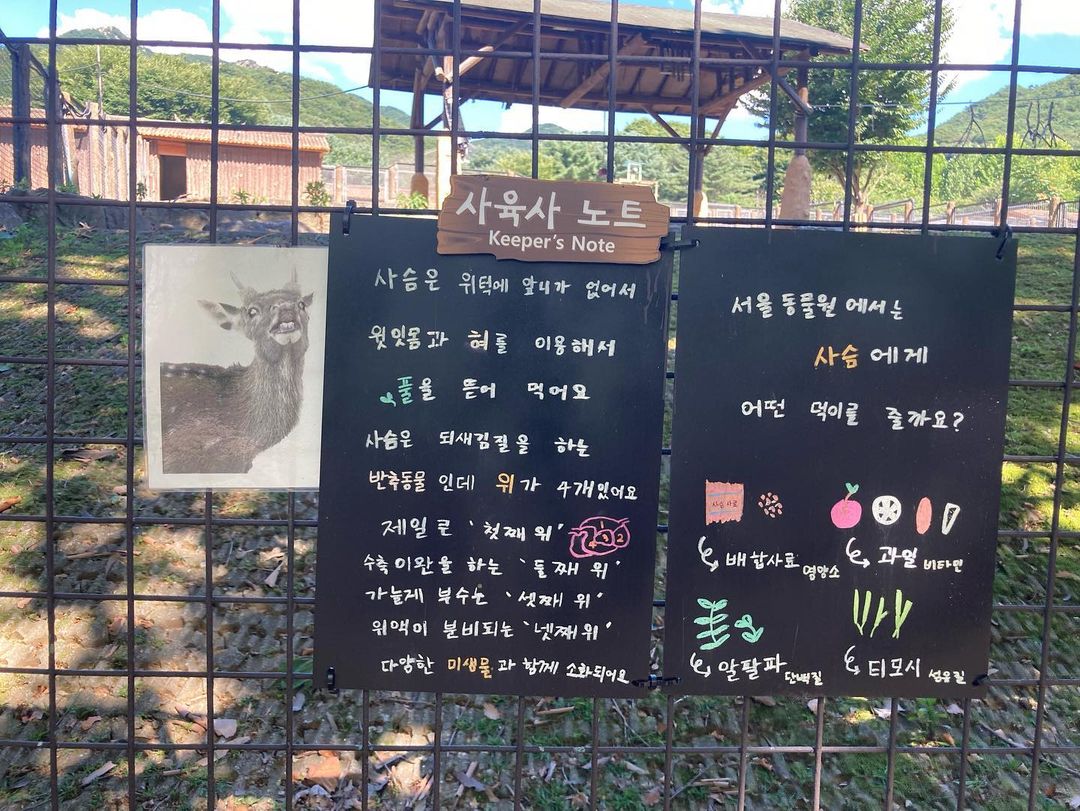 사육사 노트
Keeper's Note
사슴은 위턱에 앞니가 없어서
윗잇몸과 혀를 이용해서
풀을 뜯어 먹어요
사슴은 되새김질을 하는
반축동물인데 위가 4개있어요
제일 큰 '첫째 위'
수축이완을 하는 '둘째 위'
가늘게 부수는 '셋째 위'
위액이 분비되는 '넷째위'
다양한 미생물과 함께 소화되어요
서울동물원에서는
사슴에게
어떤 먹이를 줄까요?
사슴사료
배합사료 영양소
과일 비타민
알팔파 단백질
티모시 섬유질